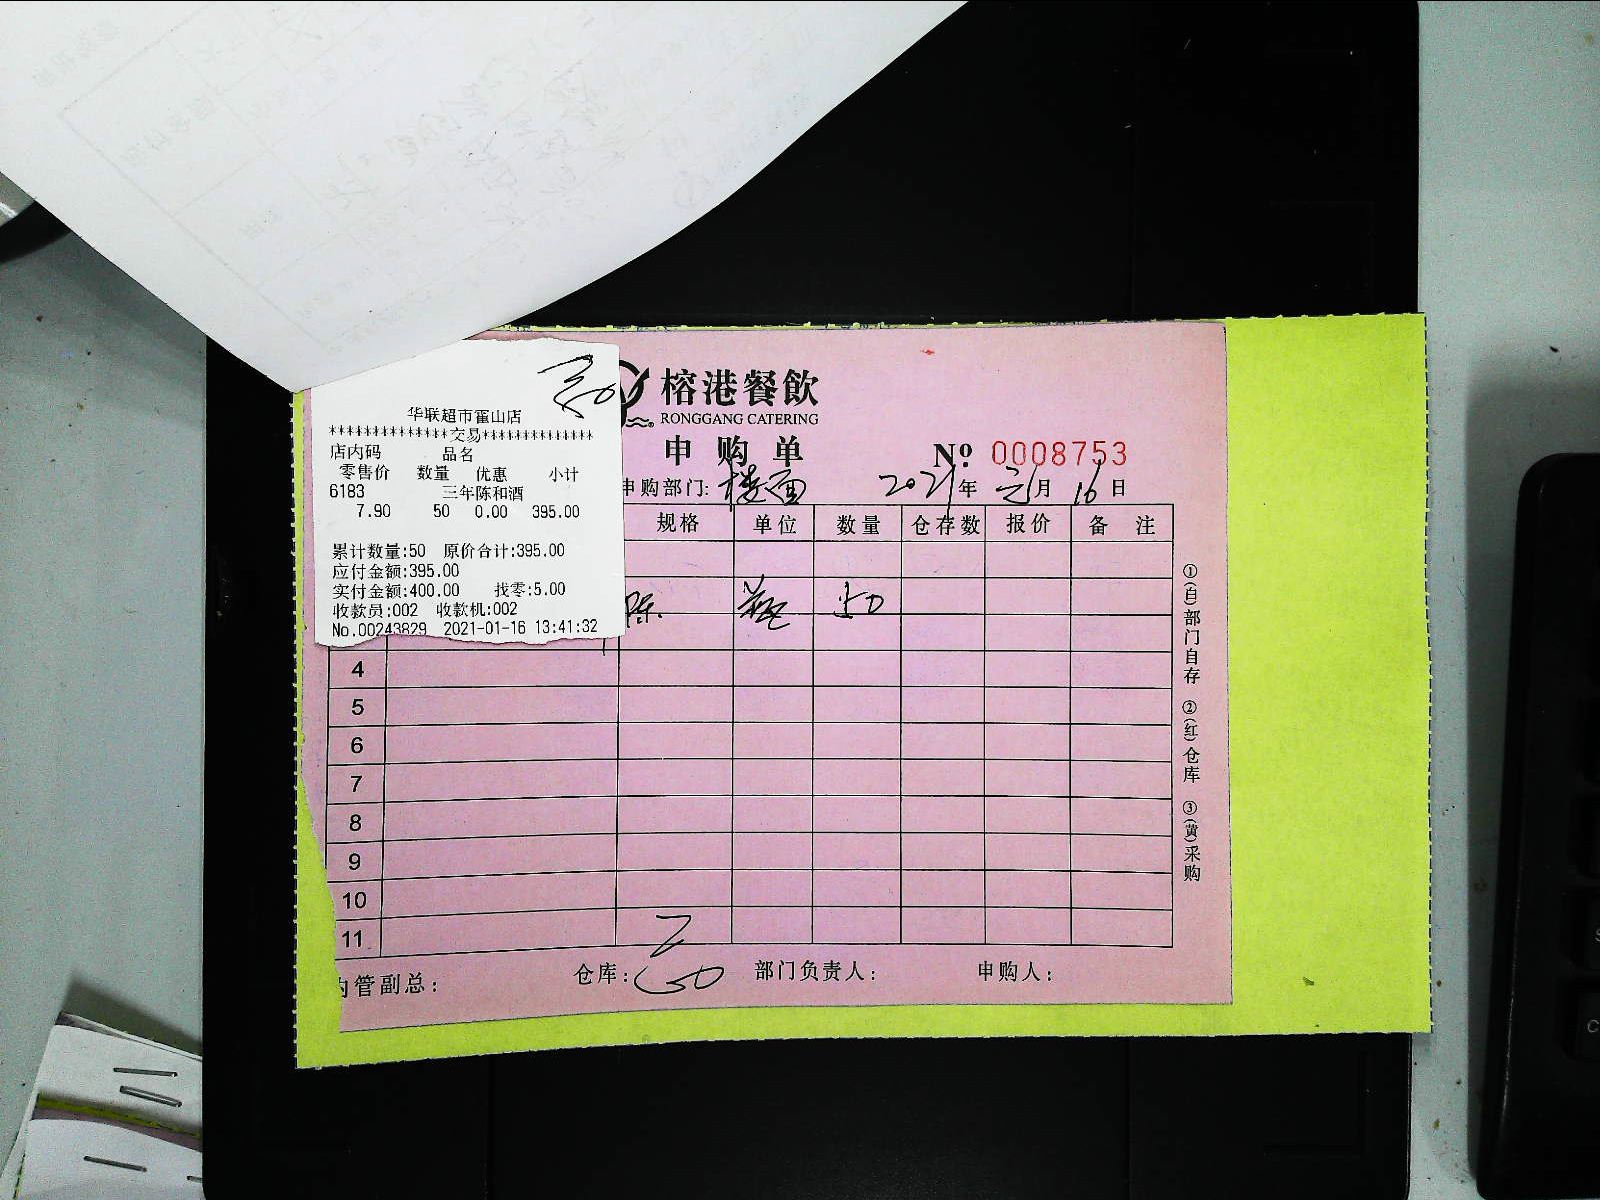 华联超市霍山店
**************交易*************
店内码 品名
零售价 数量 优惠 小计
6183 三年陈和酒
7.90 50 0.00 395.00
累计数量:50 原价合计:395.00
应付金额:395.00
实付金额:400.00 找零:5.00
收款员:002 收款机:002
No.00243829 2021-01-16 13:41:32
榕港餐飲
RONGGANG CATERING
申购单
Nº 0008753
申购部门: 楼面 2021年 元月 16日
规格 单位 数量 仓存数 报价 备 注
陈. 瓶 50
4
5
6
7
8
9
10
11
内管副总: 仓库: 部门负责人: 申购人:
①(白)部门自存 ②(红)仓库 ③(黄)采购